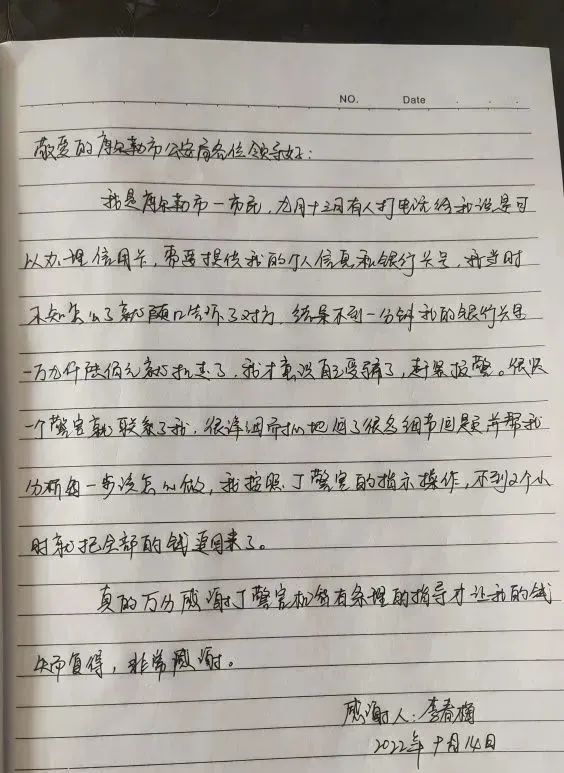 NO.          Date
敬爱的库尔勒市公安局各位领导好：
我是库尔勒市一市民，九月十三日有人打电话给我说是可
以办理信用卡，需要提供我的个人信息和银行卡号，我当时
不知怎么了就随口告诉了对方，结果不到一分钟我的银行卡里
一万九仟陆佰元就扣走了，我才意识到受骗了，赶紧报警。很快
一个警官就联系了我，很详细的问了很多细节问题并帮我
分析每一步该怎么做，我按照丁警官的指示操作，不到2个小
时就把全部的钱追回来了。
真的万分感谢丁警官机智有条理的指导才让我的钱
失而复得，非常感谢。
感谢人：李春梅
2022年 月14日